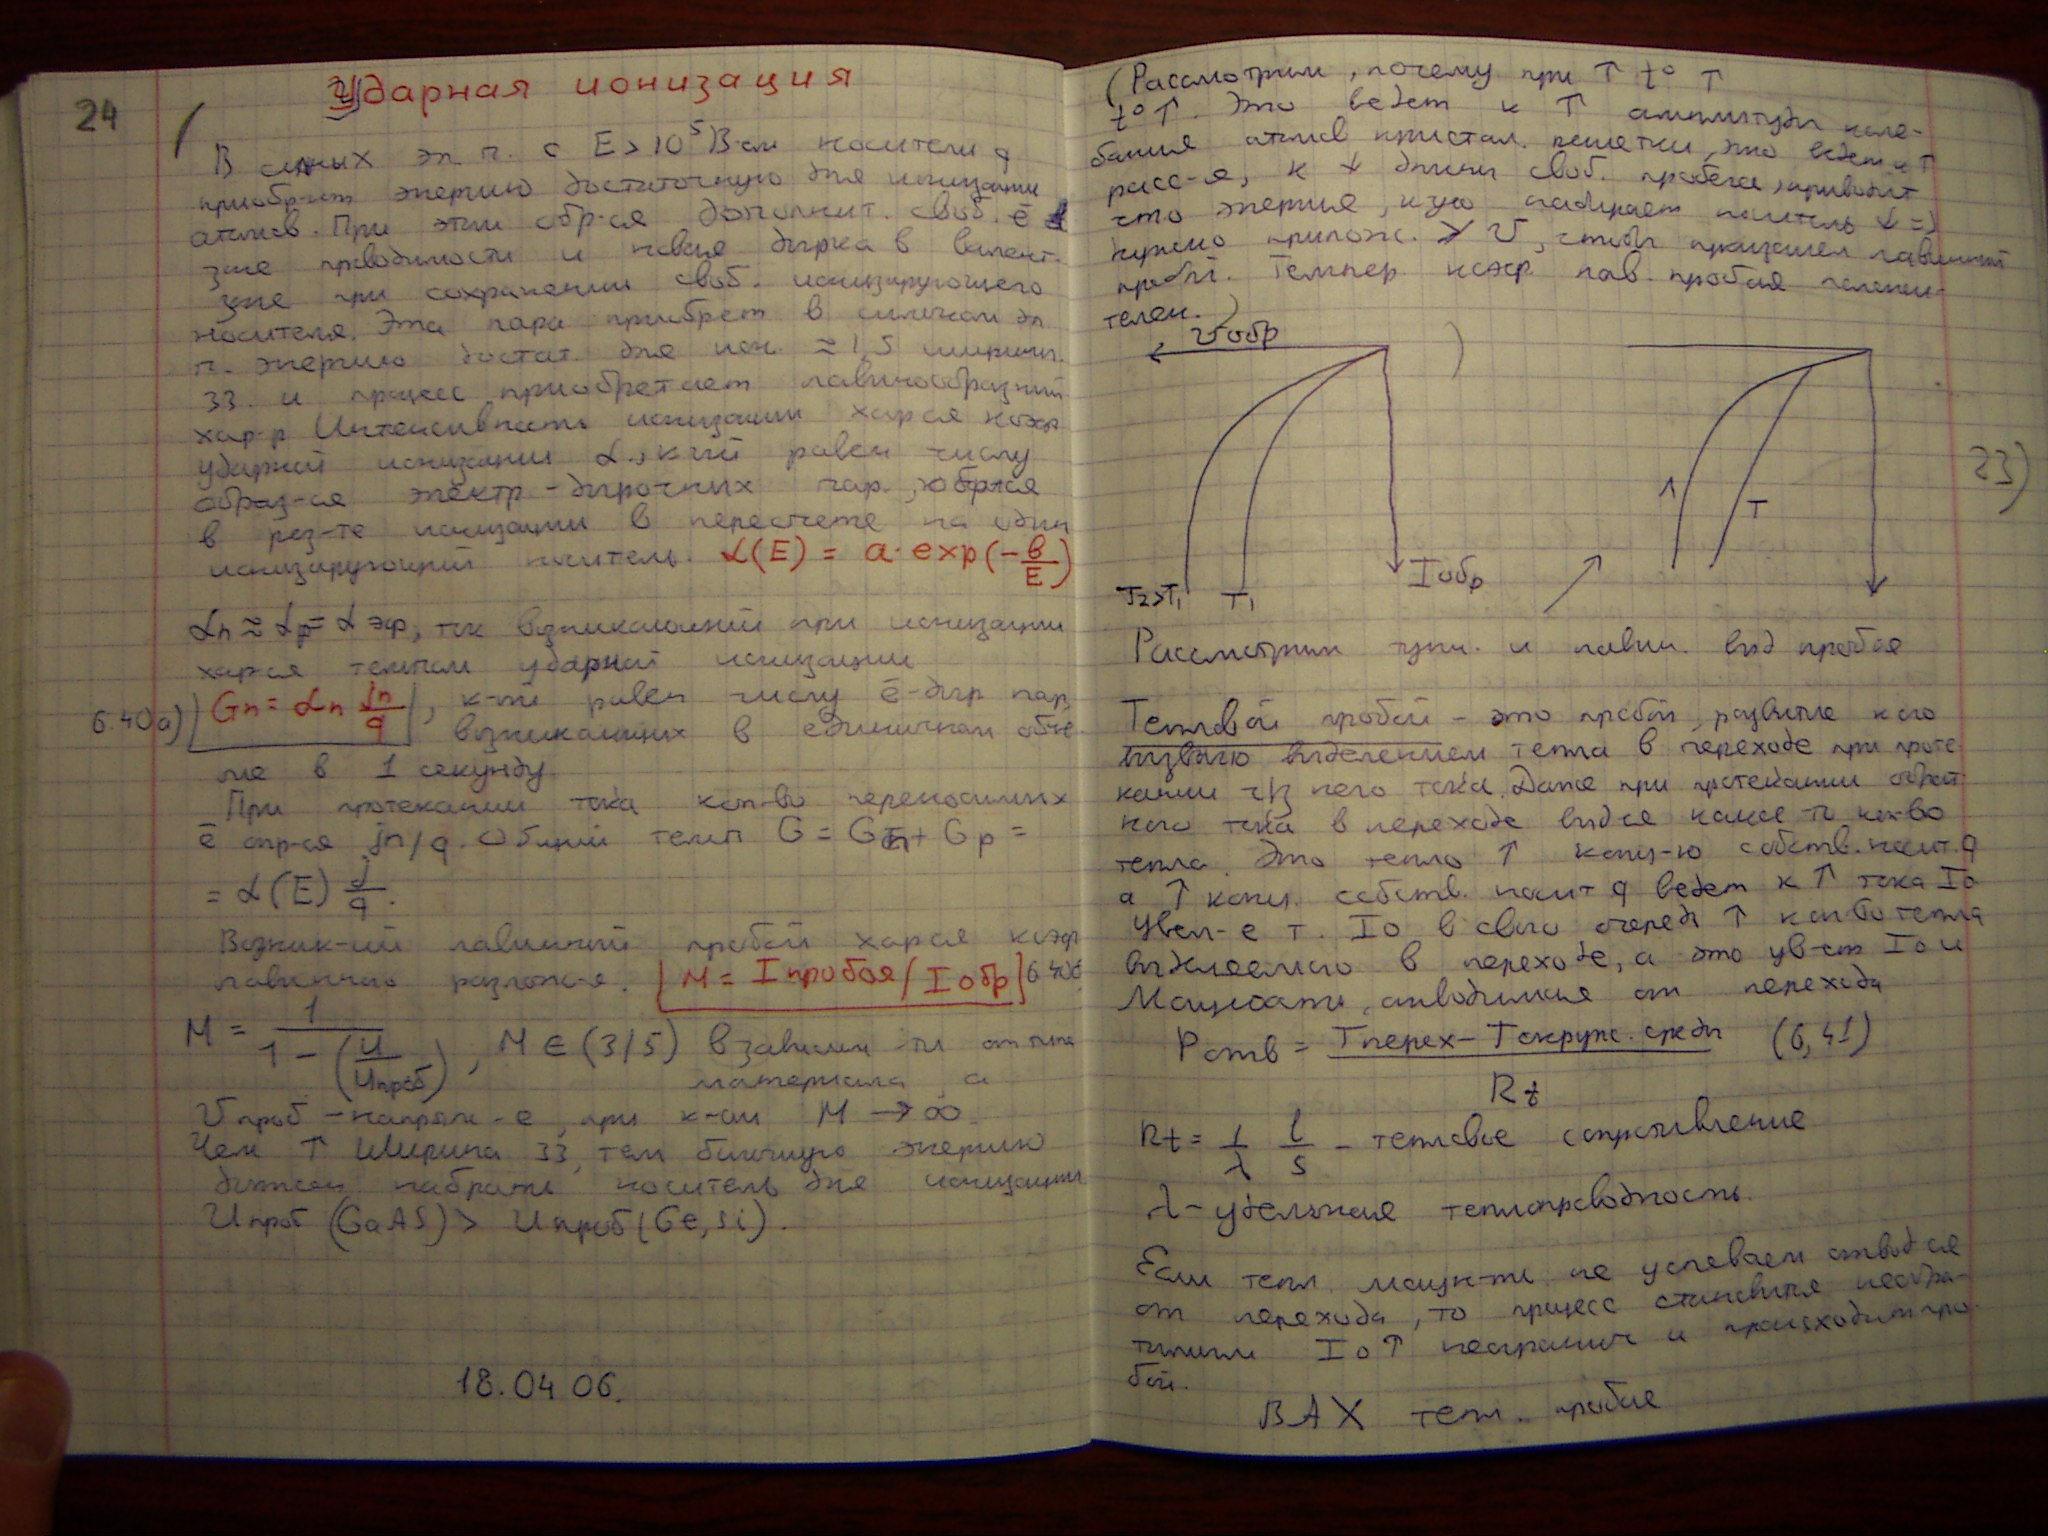 24
Ударная ионизация
В сильных эл. п. с E > 10⁵ В·см носители q
приобр-ют энергию достаточную для ионизации
атомов. При этом обр-ся дополнит. своб. ē в
зоне проводимости и новая дырка в валент.
зоне при сохранении своб. ионизирующего
носителя. Эта пара приобрет в сильном эл
п. энергию достат. для ион. ≈ 1,5 ширины
ЗЗ. и процесс приобретает лавинообразный
хар-р Интенсивность ионизации хар-ся коэф
ударной ионизации α, к-ый равен числу
образ-ся электр-дырочных пар,
в рез-те ионизации в пересчете на один
ионизирующий носитель. α(E) = a·exp(-в/E)
αn ≈ αp = α эф, ток возникающий при ионизации
хар-ся темпом ударной ионизации
6.40а) Gn = αn jn/q, к-ый равен числу ē-дыр пар,
возникающих в единичном объе-
ме в 1 секунду.
При протекании тока кол-во переносимых
ē опр-ся jn/q. Общий темп G = Gn + Gp =
= α(E) j/q.
Возник-ий лавинный пробой хар-ся коэф
лавинного размнож-я. M = I пробоя / I обр 6.40б
M = 1/(1 - (U/Uпроб)), M ∈ (3/5) в зависим-ти от типа
материала, а
Uпроб - напряж-е, при к-ом M → ∞
Чем ↑ ширина ЗЗ, тем большую энергию
должен набрать носитель для ионизации
Uпроб (GaAS) > Uпроб (Ge, Si).
18.04 06.
(Рассмотрим, почему при ↑ t° ↑
t°↑. Это ведет к ↑ амплитуды коле-
бания атомов кристал. решетки, это ведет к ↑
расс-я, к ↓ длины своб. пробега, приводит
что энергия, к-ую набирает носитель ↓ =>
нужно прилож. > U, чтобы произошел лавинный
пробой. Темпер. коэф. лав. пробоя положи-
телен.)
Uобр
23)
T
Iобр
T2>T1 T1
Рассмотрим тунн. и лавин. вид пробоя
Тепловой пробой - это пробой, развитие кого
вызвано выделением тепла в переходе при проте-
кании ч/з него тока. Даже при протекании обрат-
ного тока в переходе выд-ся какое-то кол-во
тепла. Это тепло ↑ конц-ю собств. носит. q
а ↑ конц. собств. носит q ведет к ↑ тока I0
Увел-е т. I0 в свою очередь ↑ кол-во тепла
выделяемого в переходе, а это ув-ет I0 и
Мощность, отводимая от перехода
Pотв = Tперех - Tокруж. среды / Rt (6,41)
Rt = 1/λ l/s - тепловое сопротивление
λ - удельная теплопроводность.
Если тепл. мощн-ть не успевает отвод-ся
от перехода, то процесс становится необра-
тимым I0↑ неогранич и происходит про-
бой.
ВАХ тепл. пробоя